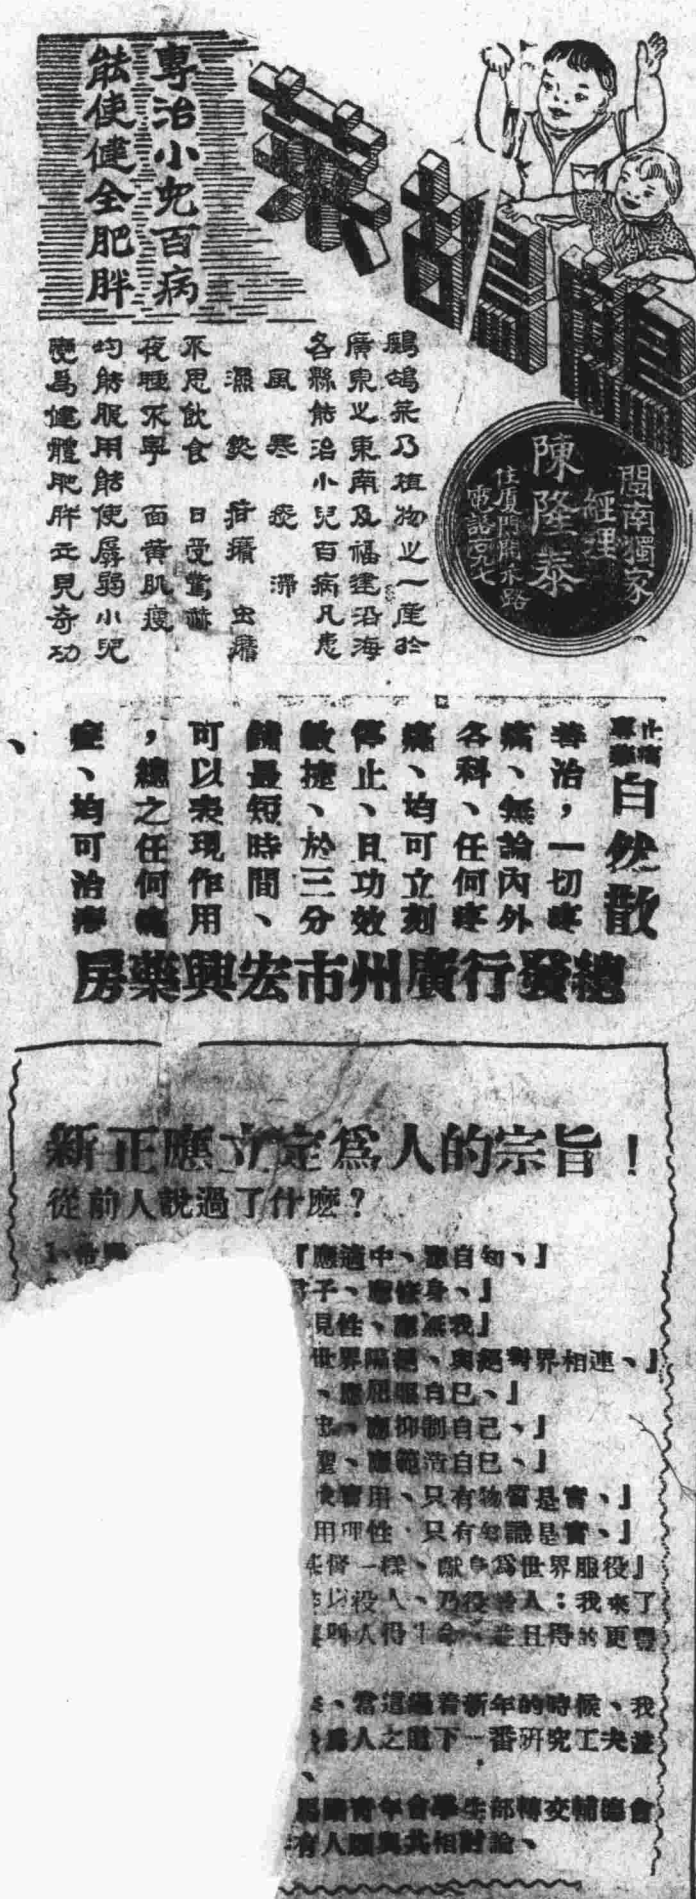 鷓鴣菜
專治小兒百病
能使健全肥胖
閩南獨家
經理
陳隆泰
住厦門開禾路
鷓鴣菜乃植物之一產於
廣東之東南及福建沿海
各縣能治小兒百病凡患
風寒 痰滯
濕熱 疳癪 虫癪
不思飲食 日受驚嚇
夜睡不寧 面黃肌瘦
均能服用能使孱弱小兒
變爲健體肥胖立見奇功
止痛
自然散
善治，一切疼
痛、無論內外
各科、任何疼
痛、均可立刻
停止、且功效
敏捷、於三分
鐘最短時間、
可以表現作用
，總之任何痛
症、均可治療
、
總發行廣州市宏興藥房
新正應立定爲人的宗旨！
從前人說過了什麽？
『應適中、應自知、』
子、應修身、』
見性、應無我』
世界隔絕、與絕對界相連、』
、應屈服自已、』
、應抑制自己、』
聖、應範造自已、』
實用、只有物質是實、』
用理性、只有知識是實、』
督一樣、獻身爲世界服役』
以役人、乃役於人：我來了
叫人得生命、並且得的更豐
、當這過着新年的時候、我
爲人之道下一番研究工夫並
、
青年會學生部轉交輔德會
有人願與共相討論、